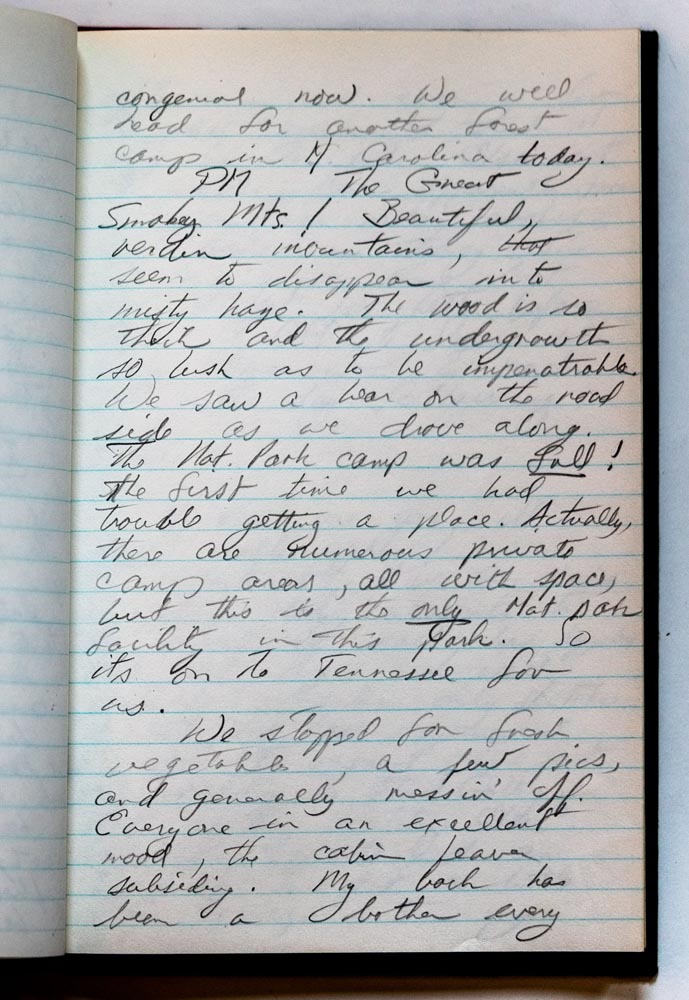 congenial now. We will
head for another forest
camp in N. Carolina today.
PM The Great
Smokey Mts. ! Beautiful,
verdin mountains, that
seem to disappear into
misty haze. The wood is so
thick and the undergrowth
so lush as to be impenatrable.
We saw a bear on the road
side as we drove along.
The Nat. Park camp was full!
The first time we had
trouble getting a place. Actually,
there are numerous private
camp areas, all with space,
but this is the only Nat. park
facility in this Park. So
it's on to Tennessee for
us.
We stopped for fresh
vegetables, a few pics,
and generally messin' off.
Everyone in an excellent
mood, the cabin feaver
subsiding. My back has
been a bother every